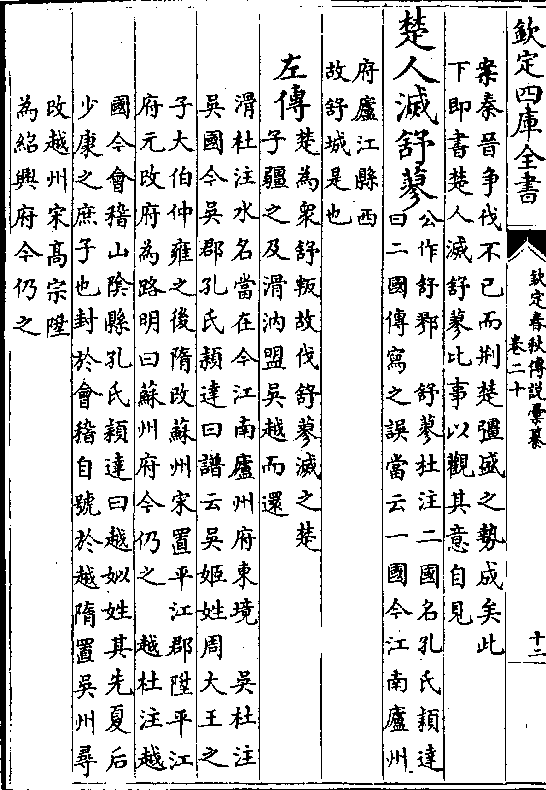 欽定四庫全書
欽定春秋傳說彙纂
卷二十
十二
案秦晉爭伐不已而荆楚彊盛之勢成矣此
下即書楚人滅舒蓼比事以觀其意自見
楚人滅舒蓼
公作舒鄝 舒蓼杜注二國名孔氏穎達
曰二國傳寫之誤當云一國今江南廬州
府廬江縣西
故舒城是也
左傳
楚為衆舒叛故伐舒蓼滅之楚
子疆之及滑汭盟吳越而還
滑杜注水名當在今江南廬州府東境 吳杜注
吳國今吳郡孔氏穎達曰譜云吳姬姓周大王之
子大伯仲雍之後隋改蘇州宋置平江郡陞平江
府元改府為路明曰蘇州府今仍之 越杜注越
國今會稽山陰縣孔氏穎達曰越姒姓其先夏后
少康之庶子也封於會稽自號於越隋置吳州尋
改越州宋高宗陞
為紹興府今仍之